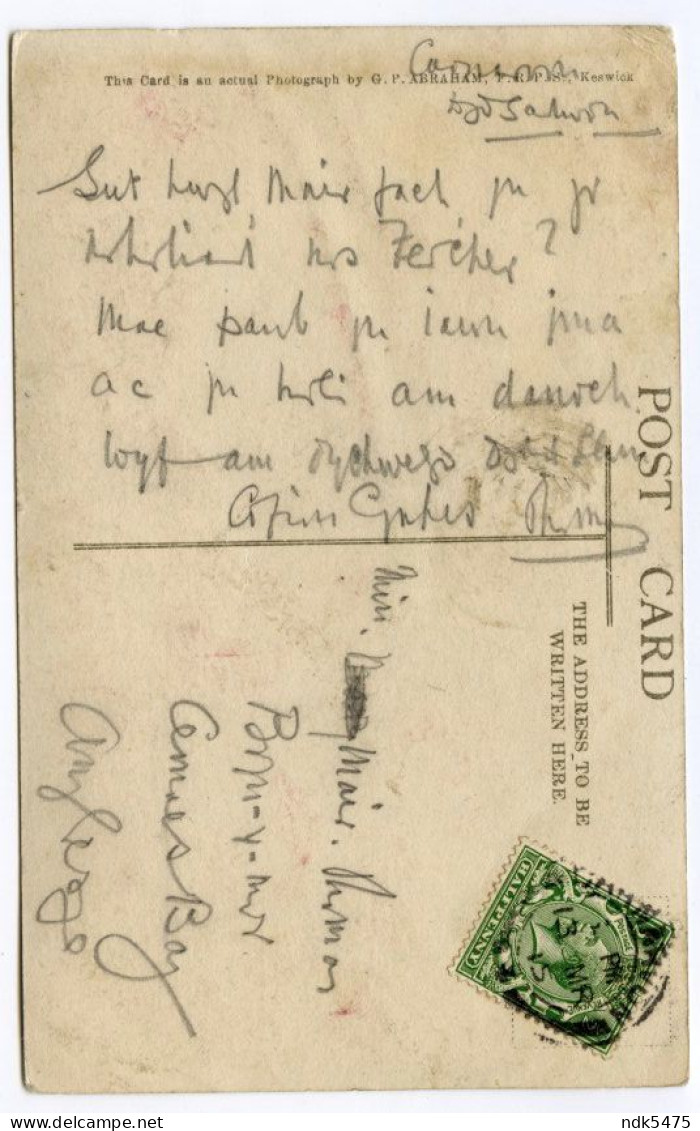 This Card is an actual Photograph by G. P. ABRAHAM, F. R. P. S., Keswick
Dydd Sadwrn
Sut hwyl, Mair fach, yn yr
Mrs
Mae pawb yn iawn yma
ac yn holi am danoch
Wyf am dychwelyd dydd Llun
Cofion
POST CARD
THE ADDRESS TO BE
WRITTEN HERE.
Miss. Mair. Thomas
Bryn-y-mor
Cemaes Bay
Anglesey
HALFPENNY
PM
13 MR
15
ndk5475